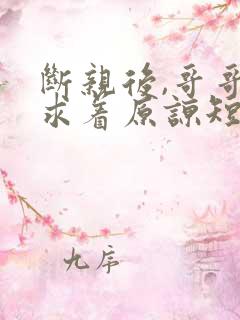 斷親後,哥哥
求着原諒短
九序